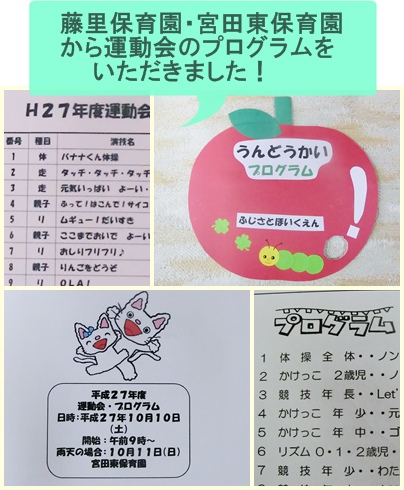 藤里保育園・宮田東保育園
から運動会のプログラムを
いただきました！
H27年度運動会
番号 種目 演技名
1 体 バナナくん体操
2 走 タッチ・タッチ・タッチ
3 走 元気いっぱい よーい・
4 親子 ふって!はこんで!サイコ
5 リ ムギュー!だいすき
6 親子 ここまでおいで よーい
7 リ おしりフリフリ♪
8 親子 りんごをどうぞ
9 リ OLA!
うんどうかい
プログラム
ふじさとほいくえん
平成27年度
運動会・プログラム
日時:平成27年10月10日
(土)
開始:午前9時～
雨天の場合:10月11日(日)
宮田東保育園
プログラム
1 体操 全体・・ノン
2 かけっこ 2歳児・・ノ
3 競技 年長・・Let'
4 かけっこ 年少・・元
5 かけっこ 年中・・ゴ
6 リズム 0・1・2歳児・
7 競技 年少・・わた